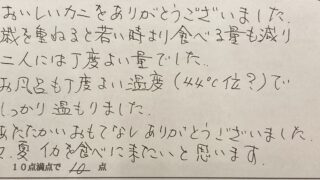 おいしいカニをありがとうございました。
歳を重ねると若い時より食べる量も減り
二人には丁度よい量でした。
お風呂も丁度よい温度(44℃位?)で
しっかり温もりました。
あたたかいおもてなしありがとうございました。
又、夏イカを食べに来たいと思います。
10点満点で 10 点